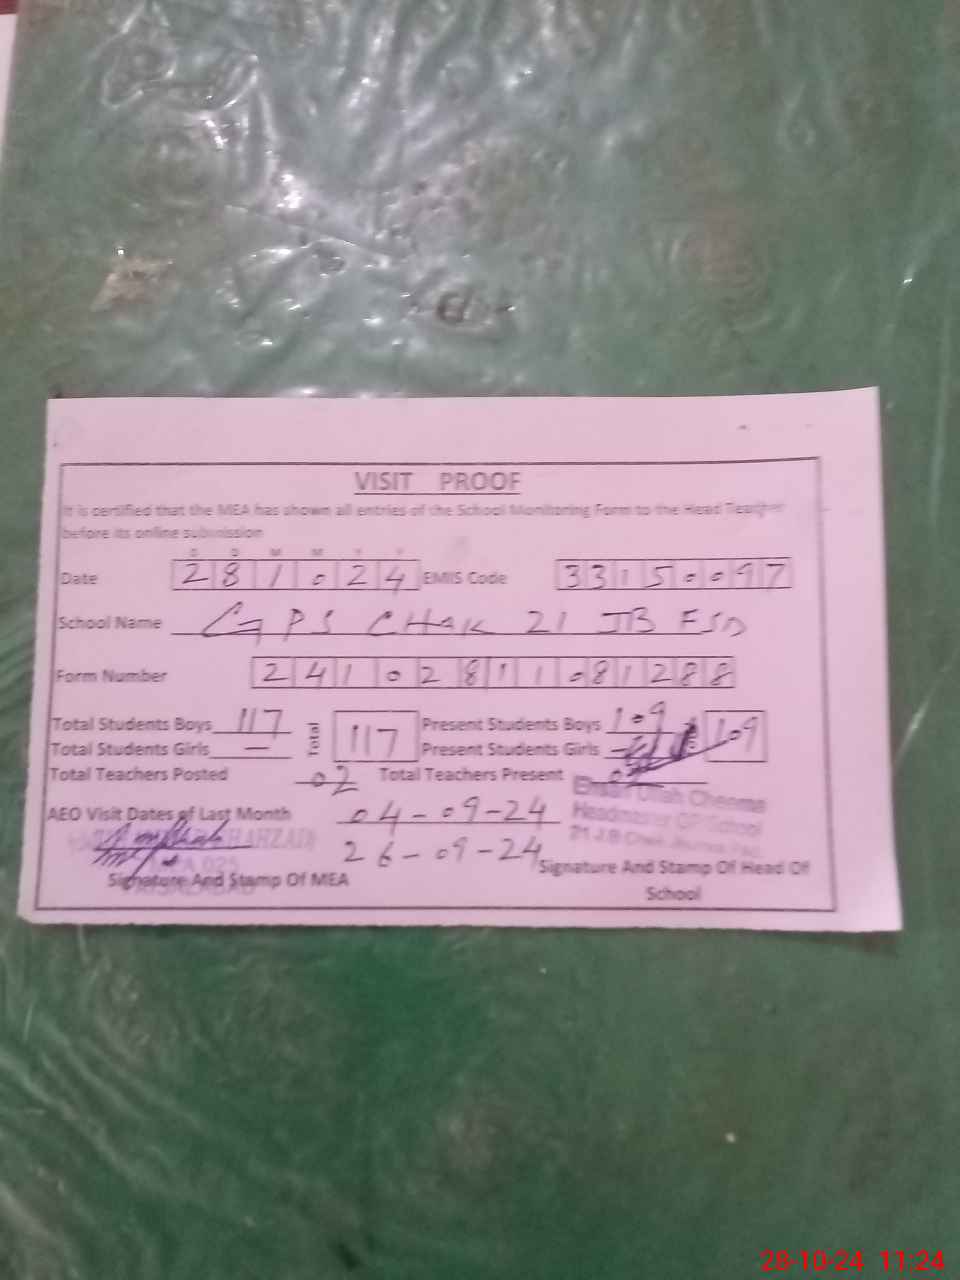 VISIT PROOF
It is certified that the MEA has shown all entries of the School Monitoring Form to the Head Teacher
before its online submission
D D M M Y Y
Date 281024 EMIS Code 33150097
School Name GPS CHAK 21 JB FSD
Form Number 24102811081288
Total Students Boys 117 Total 117 Present Students Boys 109 109
Total Students Girls — Present Students Girls —
Total Teachers Posted 02 Total Teachers Present
AEO Visit Dates of Last Month 04-09-24
26-09-24
Headmaster GP/School
Signature And Stamp Of MEA
Signature And Stamp Of Head Of
School
28-10-24 11:24